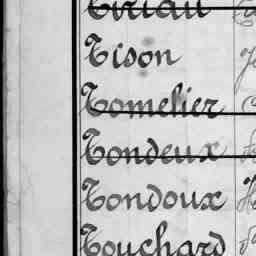 Tison
Tomelier
Tondeux
Tondoux
Touchard